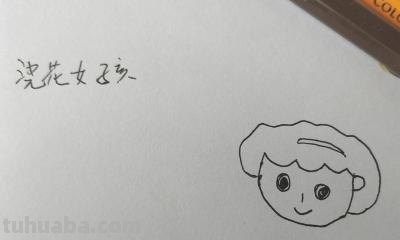 浇花女孩
COLO
tuhuaba.com